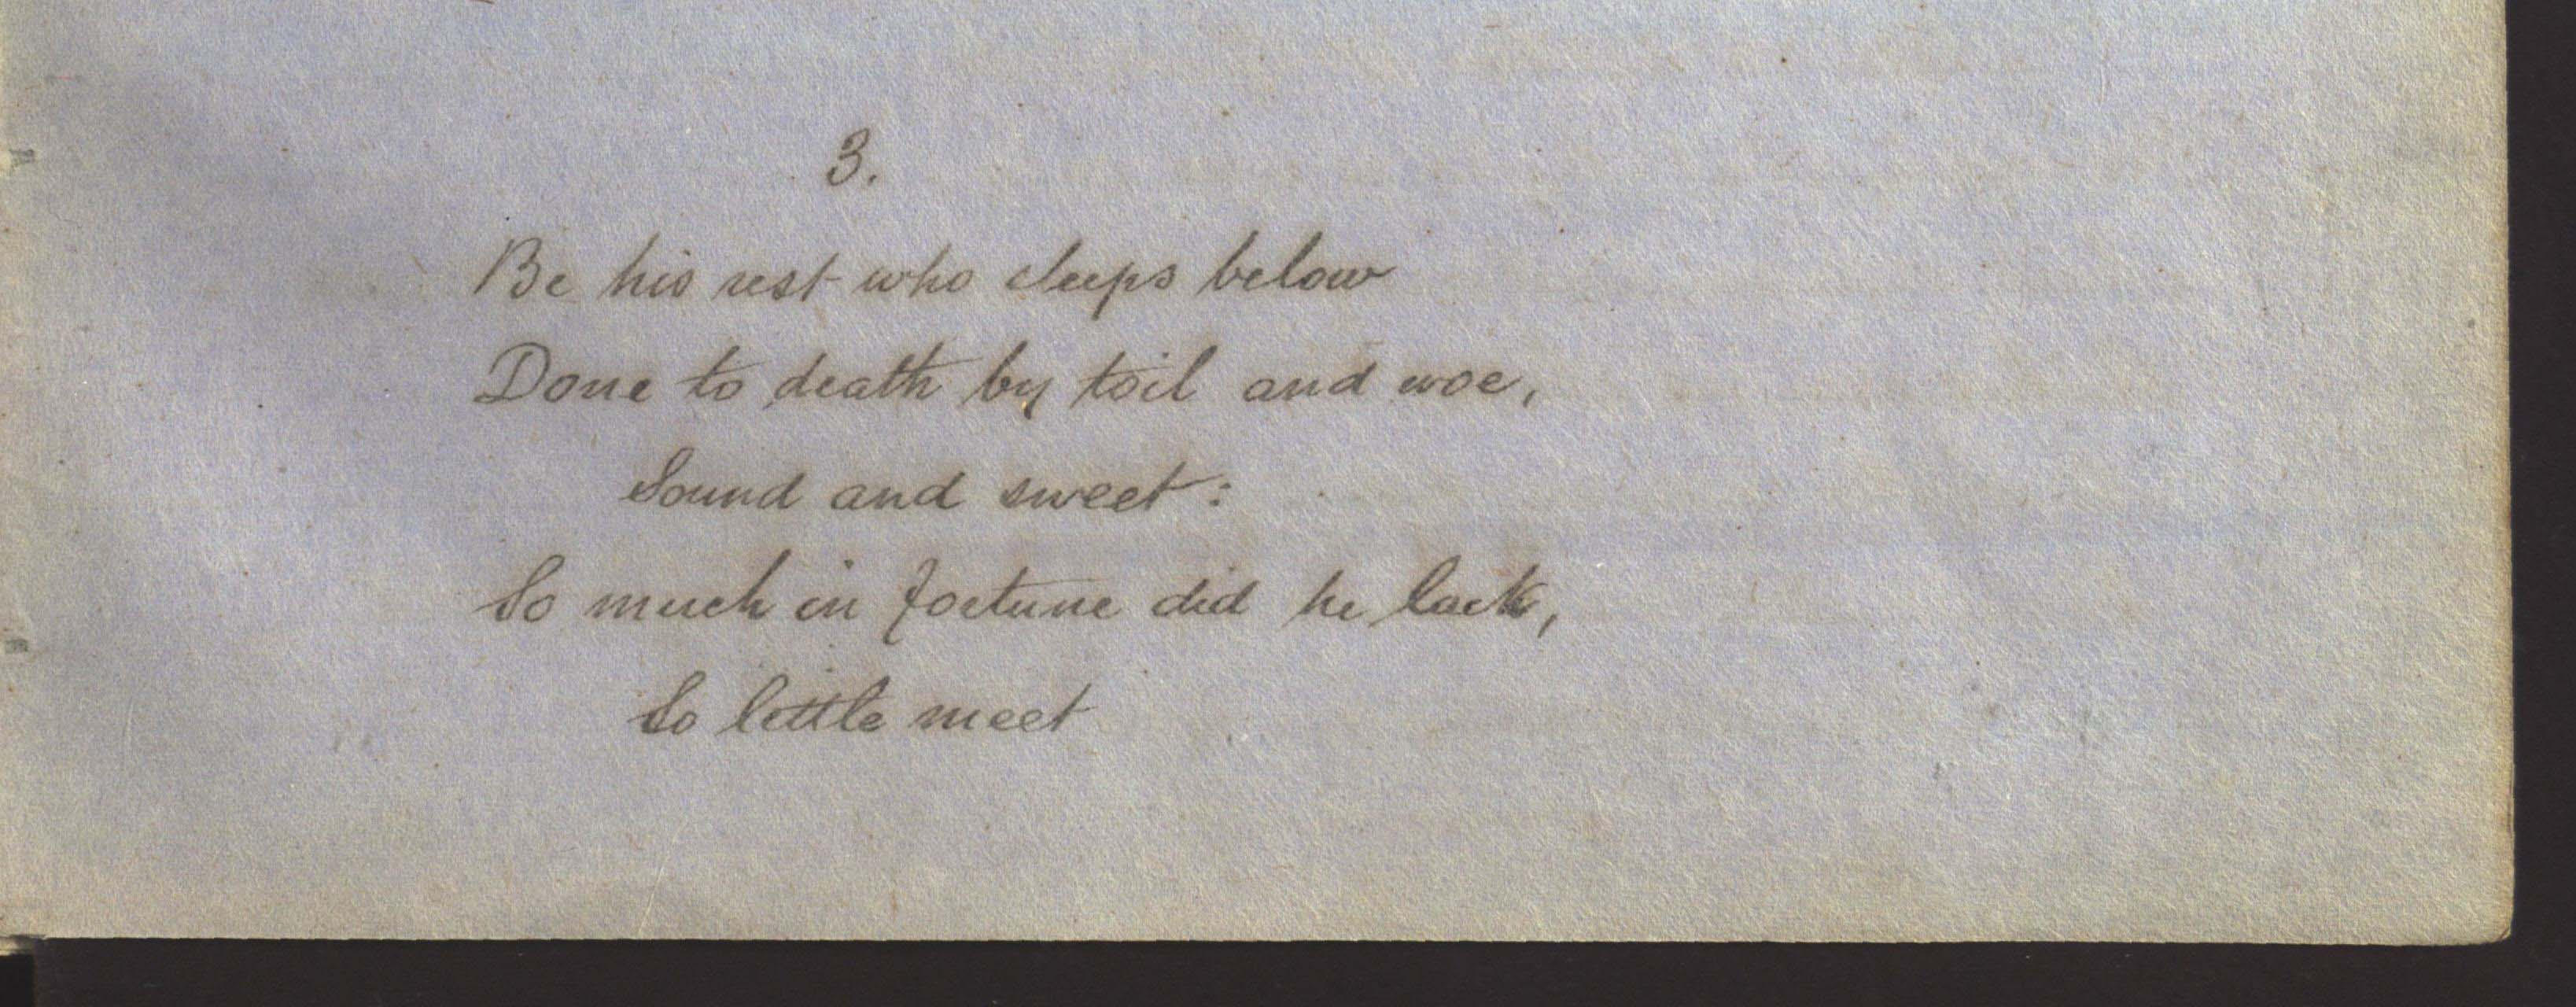 3.
Be his rest who sleeps below
Done to death by toil and woe,
Sound and sweet:
So much in fortune did he lack,
So little meet